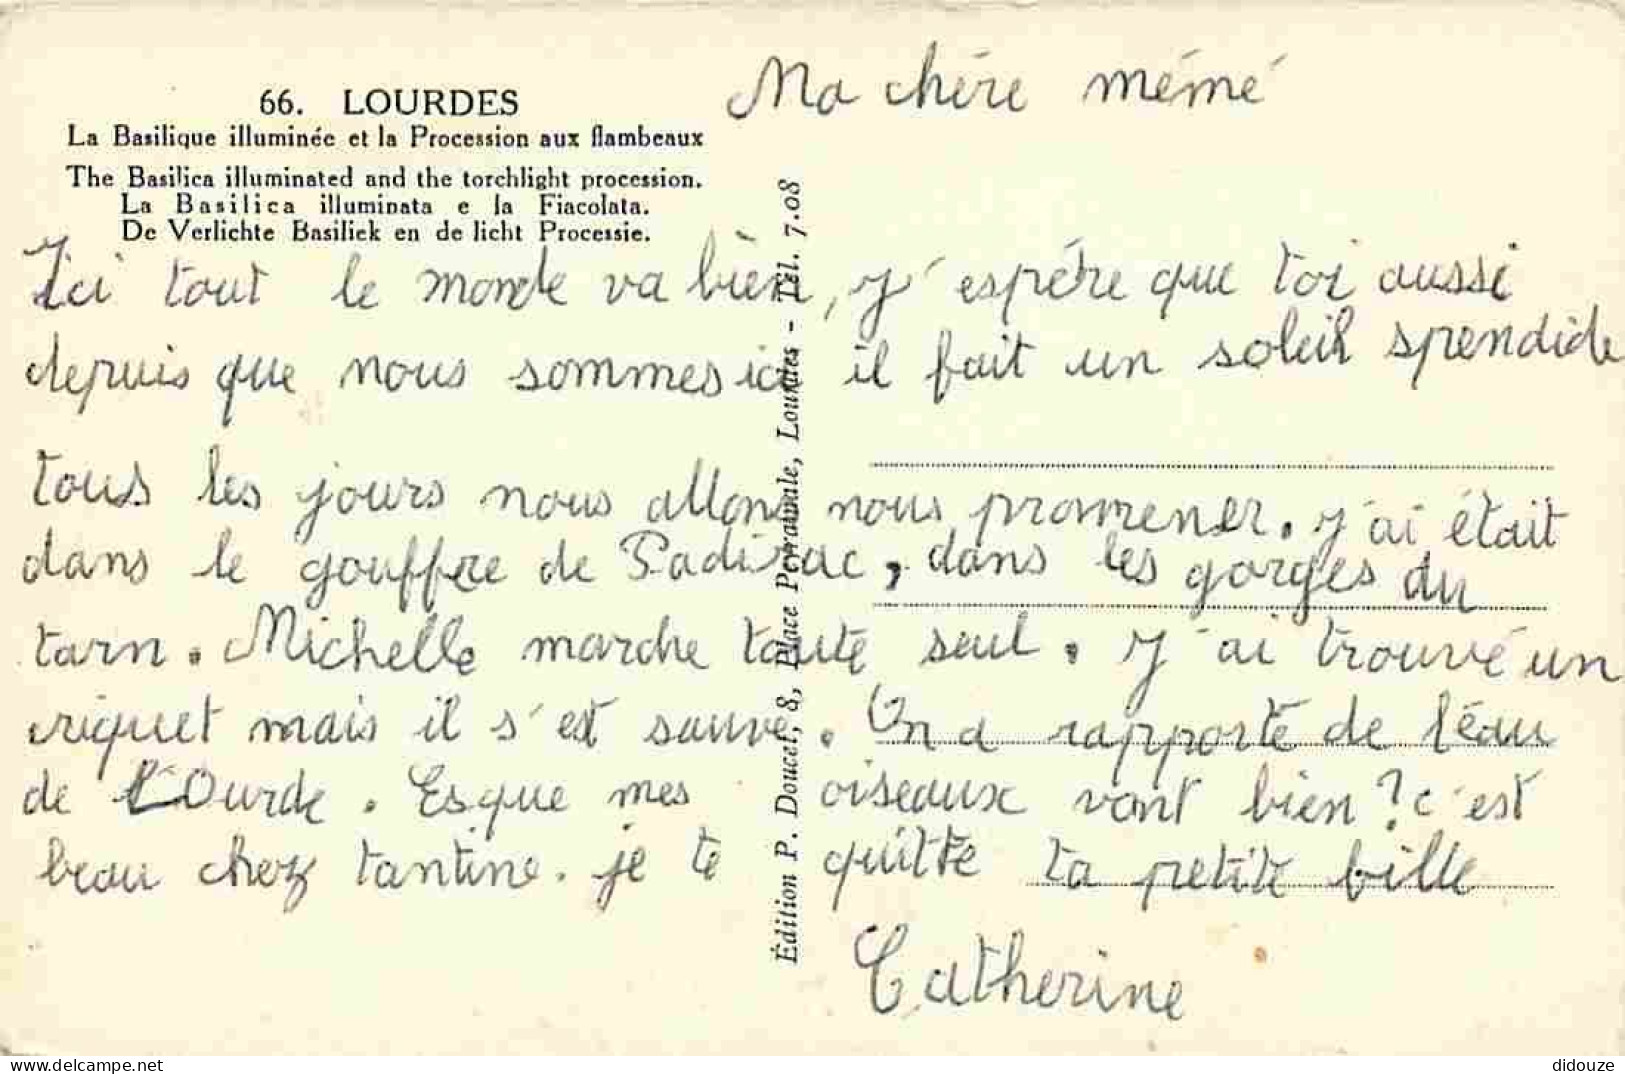 66. LOURDES
La Basilique illuminée et la Procession aux flambeaux
The Basilica illuminated and the torchlight procession.
La Basilica illuminata e la Fiacolata.
De Verlichte Basiliek en de licht Processie.
Ma chére mémé
Ici tout le monde va bien, j'espére que toi aussi
depuis que nous sommes ici il fait un soleil splendide
tous les jours nous allons nous promener. j'ai était
dans le gouffre de Padirac, dans les gorges du
tarn. Michelle marche toute seul. j'ai trouvé un
criquet mais il s'est sauvé. On a rapporté de l'éau
de LOurde. Esque mes oiseaux vont bien? c'est
beau chez tantine. je te quitte ta petite fille
Catherine
Édition P. Doucet, 8, Place Peyramale, Lourdes - Tél. 7.08
https://www.delcampe.net
didouze